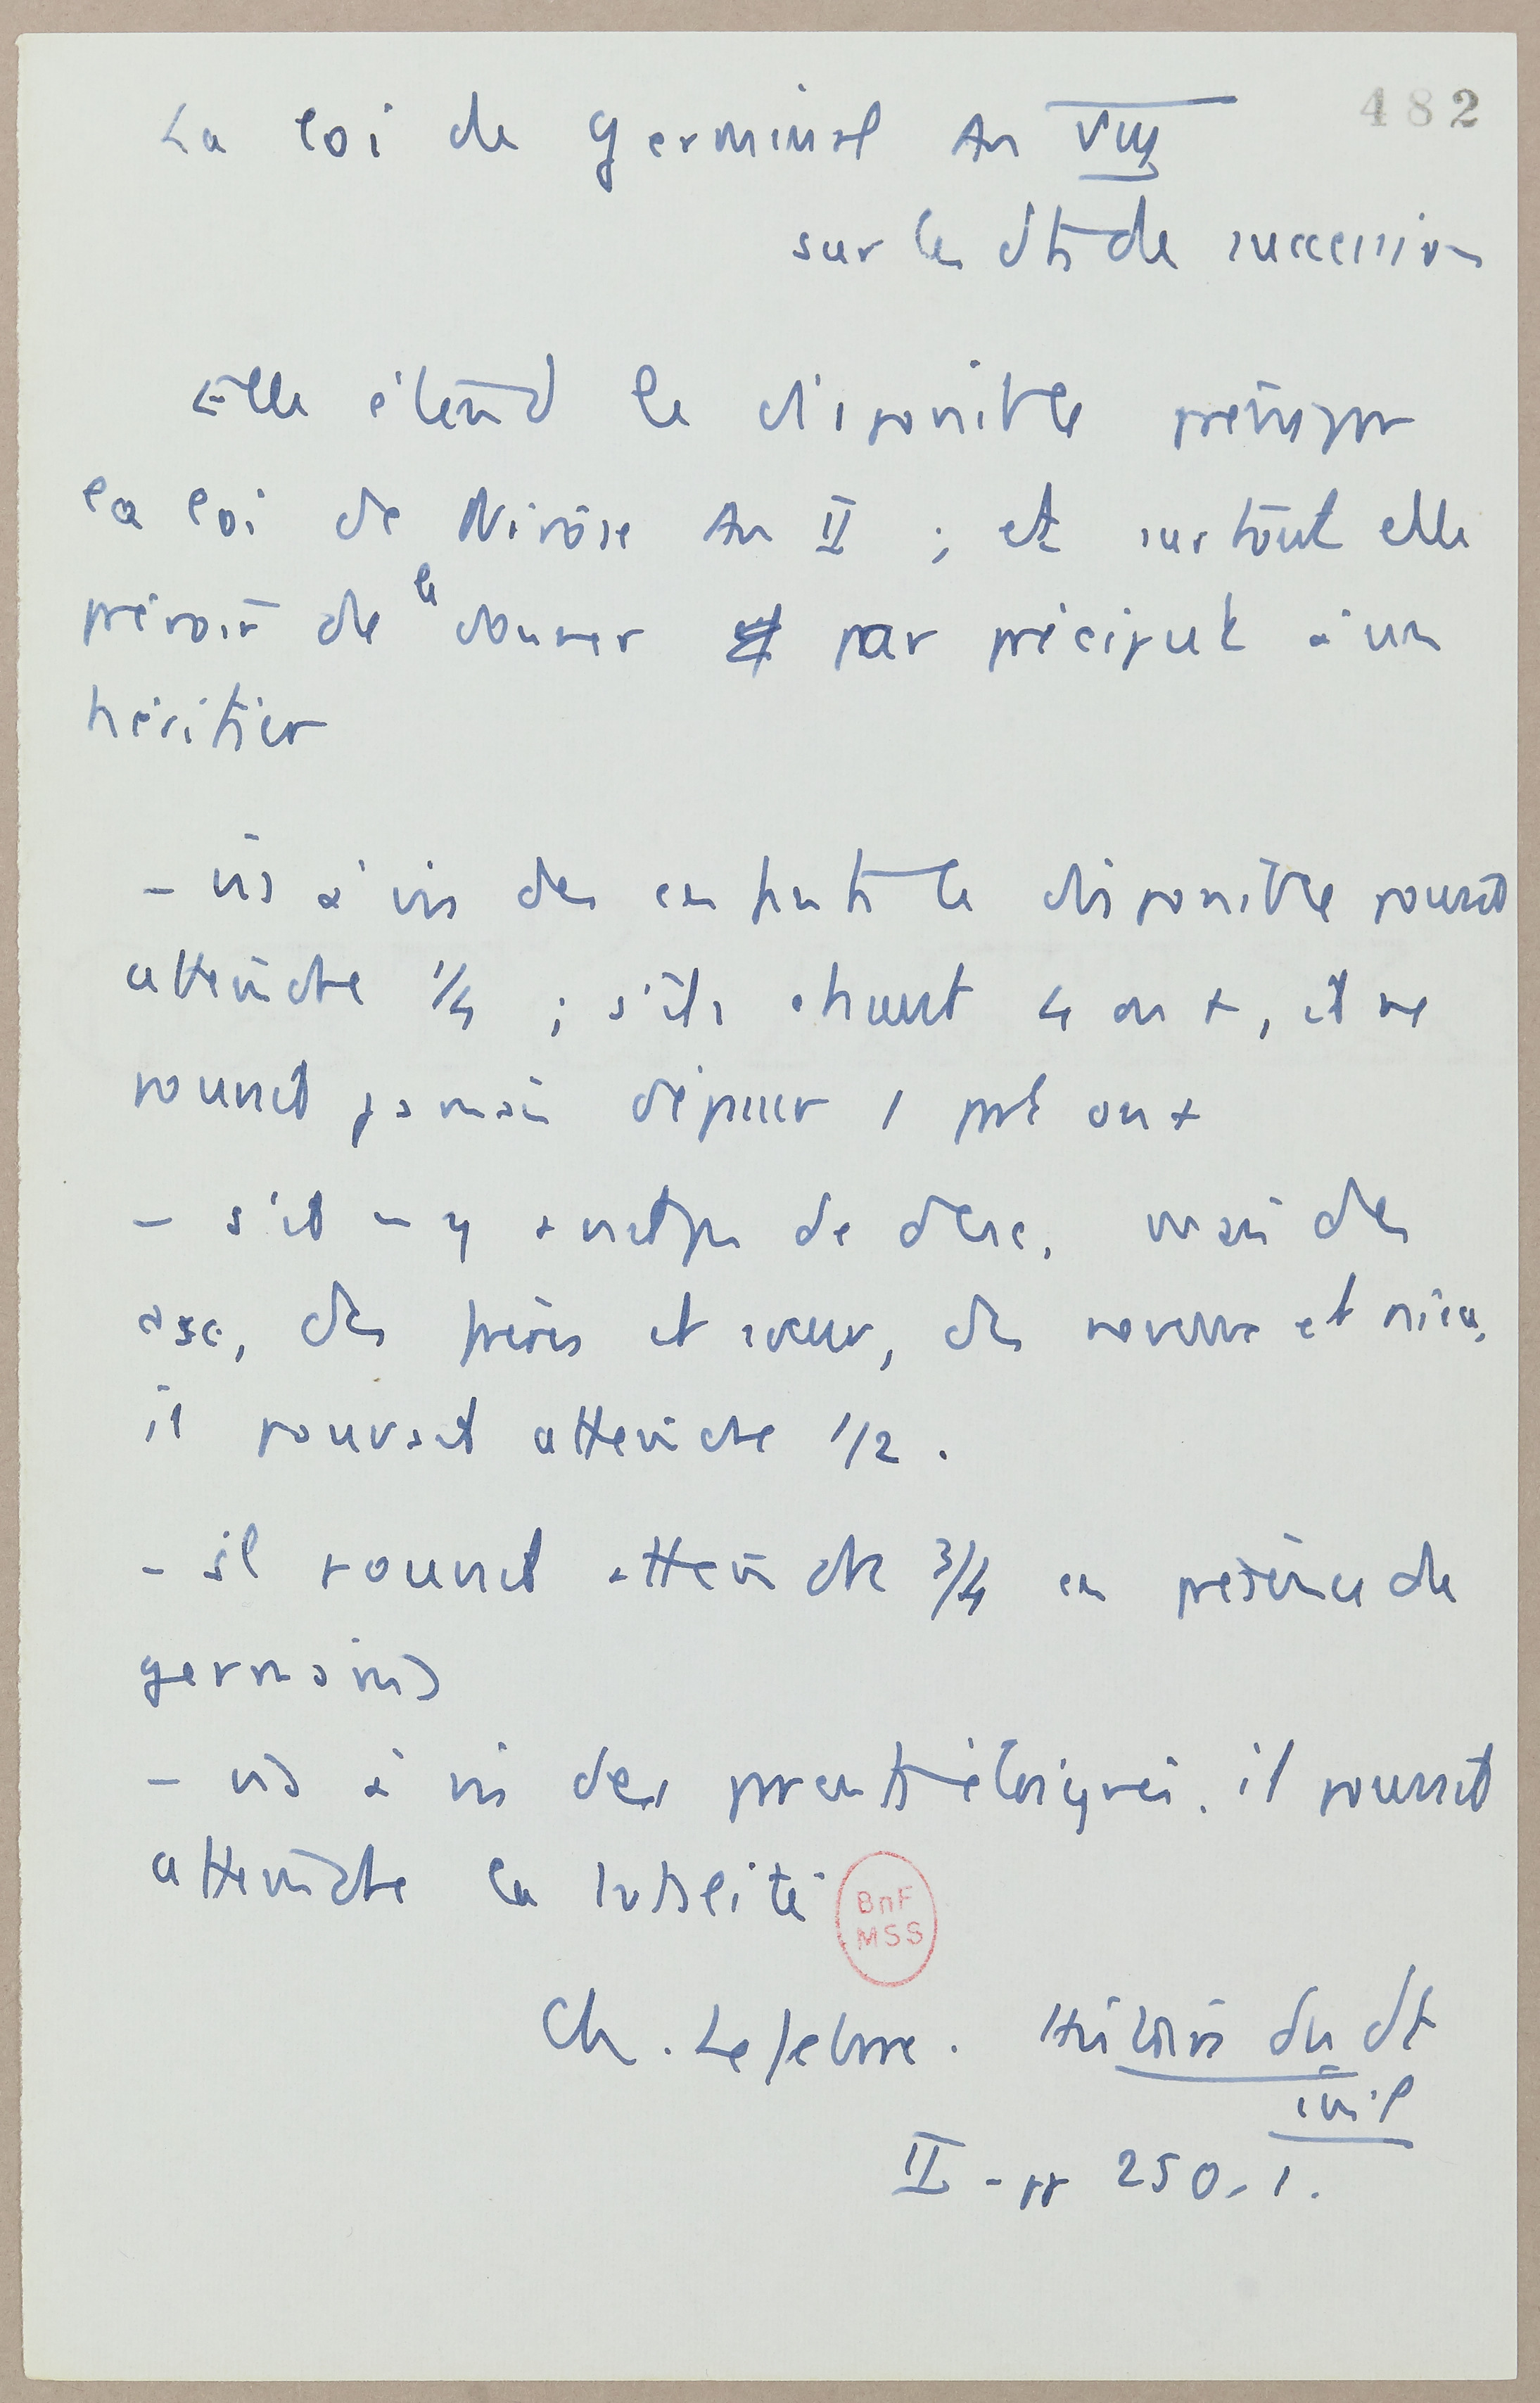 482
La loi de Germinal An VIII
sur les dts de succession
Elle étend le disponible prévu par
la loi de Nivôse An II ; et surtout elle
prévoit de le donner par préciput à un
héritier
- vis à vis des enfants le disponible pouvait
atteindre 1/4 ; s'ils étaient 4 ou +, il ne
pouvait jamais dépasser 1 part ou +
- s'il n'y avait pas de desc. mais des
asc, des frères et sœurs, des neveux et nièces,
il pouvait atteindre 1/2.
- il pouvait atteindre 3/4 en présence de
germains
- vis à vis des parents éloignés. il pouvait
atteindre la totalité
BnF
MSS
Ch. Lefebvre. Histoire du dt
civil
II - pp 250-1.